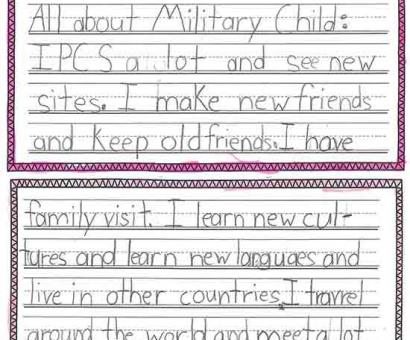 All about Military Child:
I PCS a lot and see new
sites. I make new friends
and keep old friends. I have
family visit. I learn new cul-
tures and learn new languaes and
live in other countries, I travrel
around the world and meet a lot